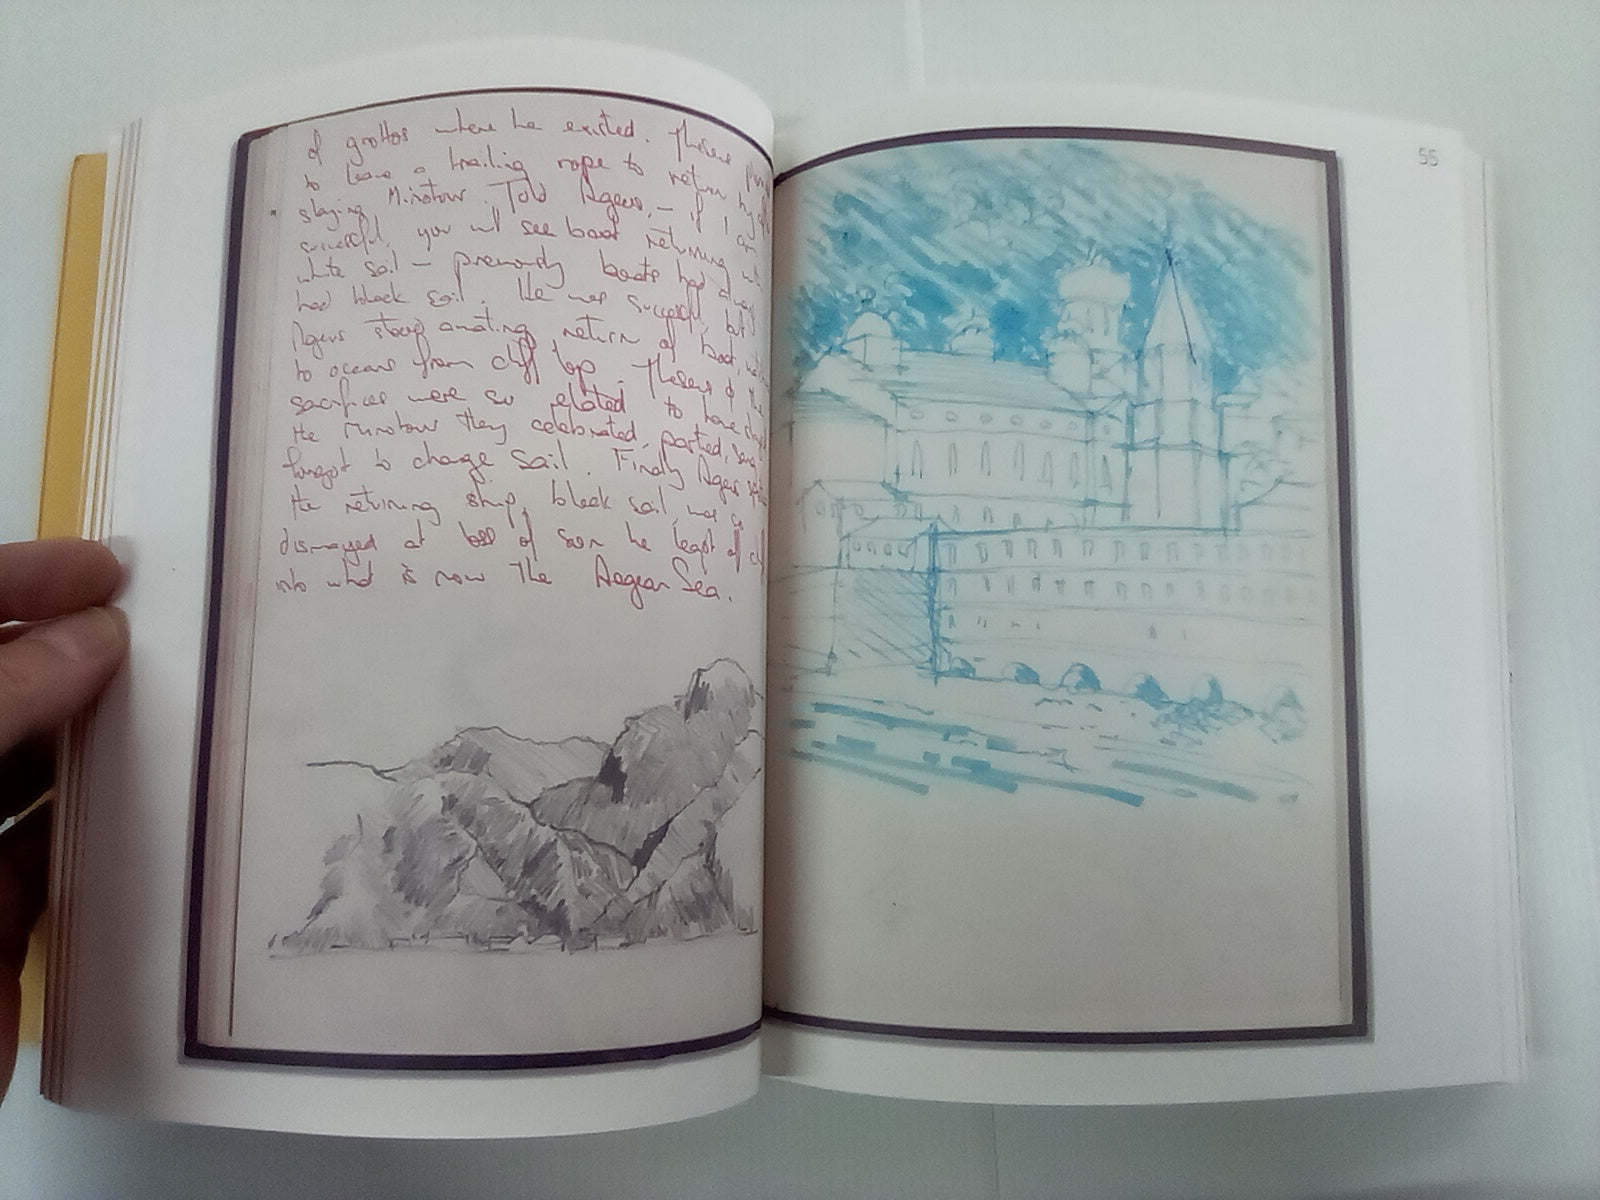 of grottos where he existed. Theseus
to leave a trailing rope to return by after
slaying Minotaur. Told Ageus, - if I am
successful, you will see boat returning with
white sail - previously boats had always
had black sail. He was successful, but
Ageus stood awaiting return of boat,
to ocean from cliff top. Theseus & the
sacrifices were so elated to have slayed
the Minotaur they celebrated, partied, sang
forgot to change sail. Finally Ageus
the returning ship, black sail, was so
dismayed at loss of son he leapt off cliff
into what is now the Aegean Sea.
55